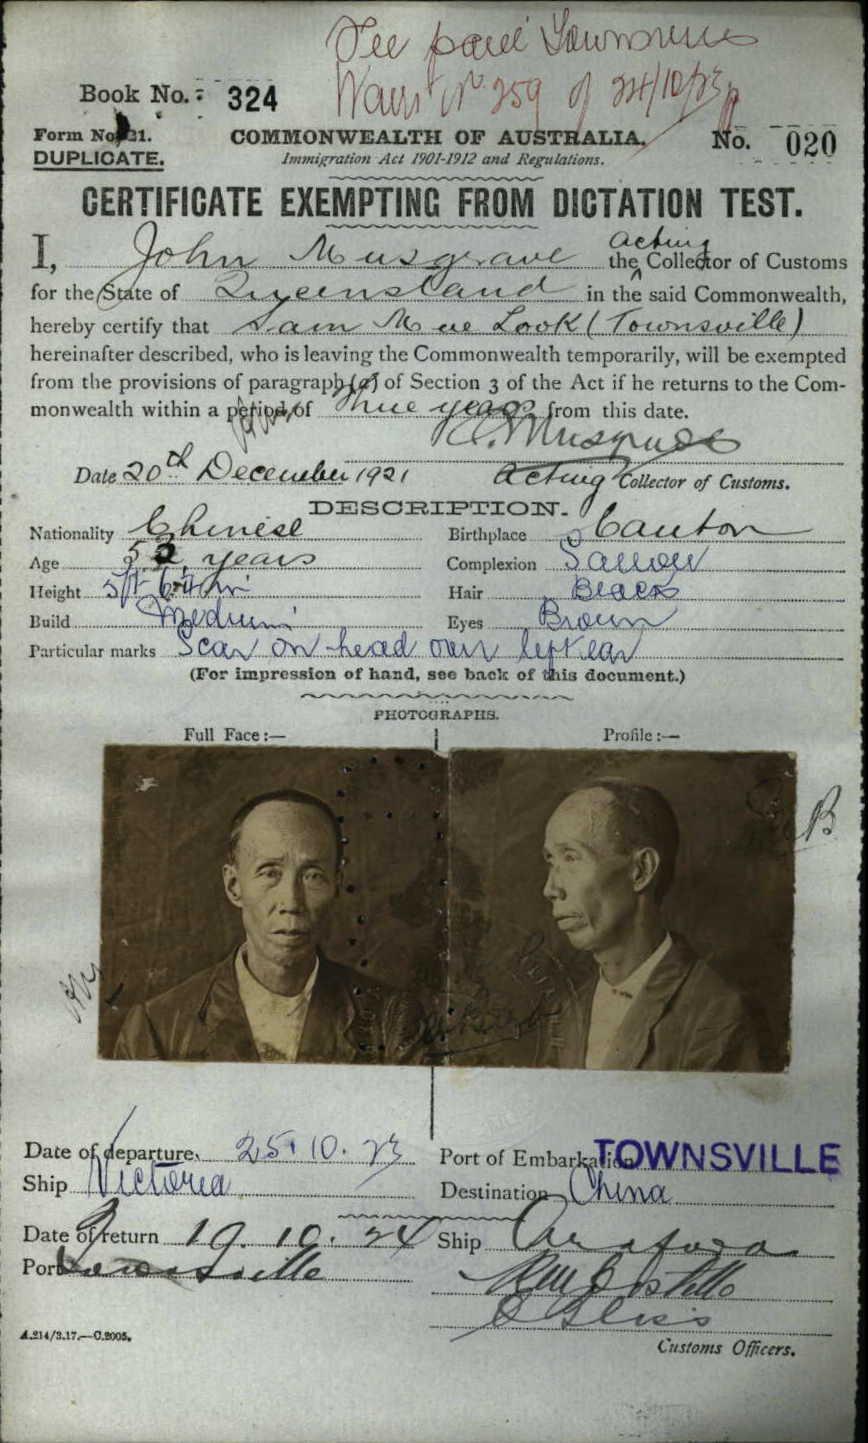 See
Book No. 324
No. 259 of 24/10/23
Form No. 21.
DUPLICATE.
COMMONWEALTH OF AUSTRALIA.
Immigration Act 1901-1912 and Regulations.
No. 020
CERTIFICATE EXEMPTING FROM DICTATION TEST.
I, John Musgrave the acting Collector of Customs
for the State of Queensland in the said Commonwealth,
hereby certify that Sam Mue Look (Townsville)
hereinafter described, who is leaving the Commonwealth temporarily, will be exempted
from the provisions of paragraph (a) of Section 3 of the Act if he returns to the Com-
monwealth within a period of three years from this date.
Musgrave
Date 20th December 1921 Acting Collector of Customs.
DESCRIPTION.
Nationality Chinese Birthplace Canton
Age 52 years Complexion Sallow
Height 5ft Hair Black
Build Medium Eyes Brown
Particular marks Scar on head over left ear
(For impression of hand, see back of this document.)
PHOTOGRAPHS.
Full Face :— Profile :—
Date of departure 25.10.23 Port of Embarkation TOWNSVILLE
Ship Victoria Destination China
Date of return 19.10.24 Ship Arafura
Port Townsville
Customs Officers.
A.214/3.17.—C.2005.